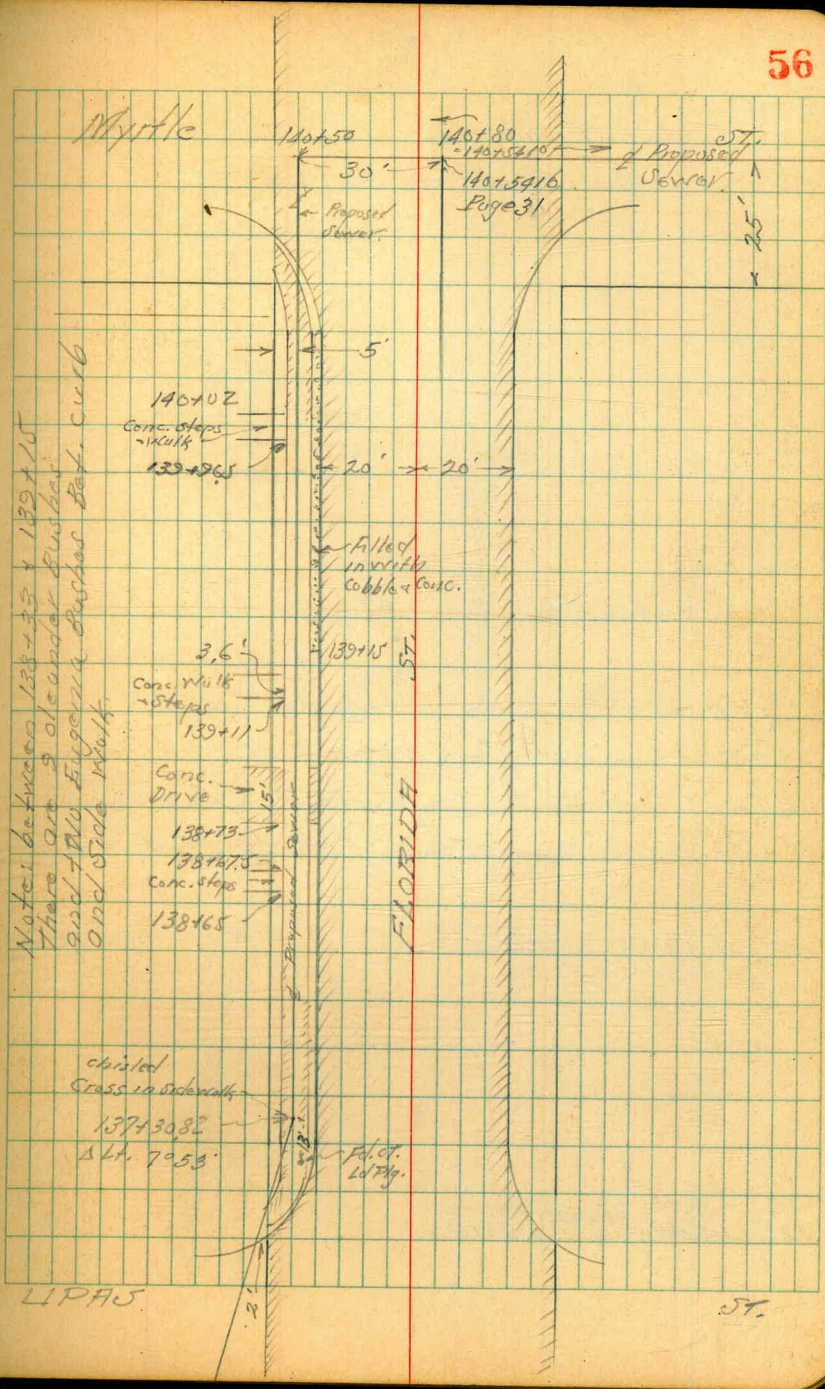 56
Myrtle
ST.
140+50
140+80
=140+5410
℄ Proposed
Sewer.
30'
140+5410
Page 31
℄
Proposed
Sewer.
25'
5'
140+02
Conc. Steps
+Walk
139+96.5
20'
20'
Filled
in with
Cobble & Conc.
3.6'
139+15
ST.
Conc. Walk
+Steps
139+11
Conc.
Drive
15'
138+73
138+67.5
Conc. Steps
138+65
℄ Proposed Sewer
FLORIDA
Note: between 138+33 & 139+15
There are 9 oleander Bushes
and two Eugenia Bushes Bet. Curb
and Side Walk.
chisled
Cross in Sidewalk
137+30.82
Δ Lt. 7°53'
Fd. ct.
Ld Plg.
2'
UPAS
ST.